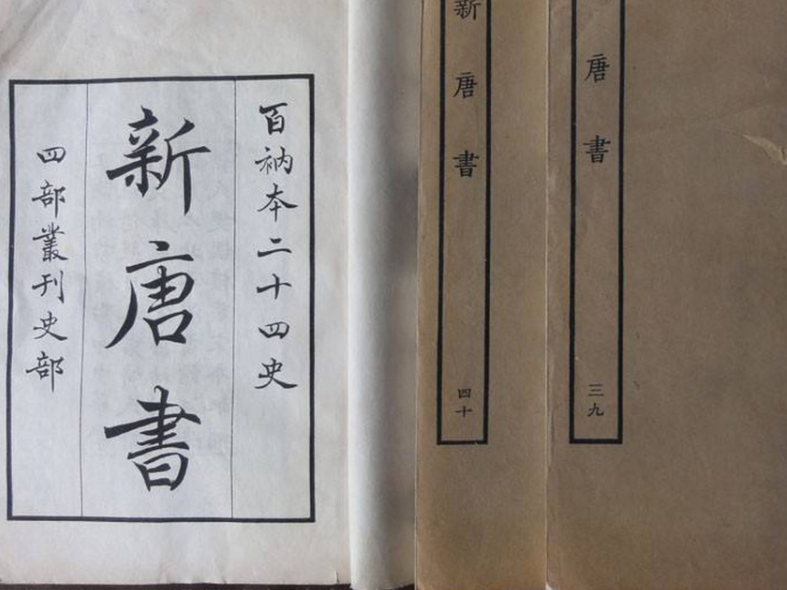 百衲本二十四史
新唐書
四部叢刊史部
新唐書
四十
唐書
三九